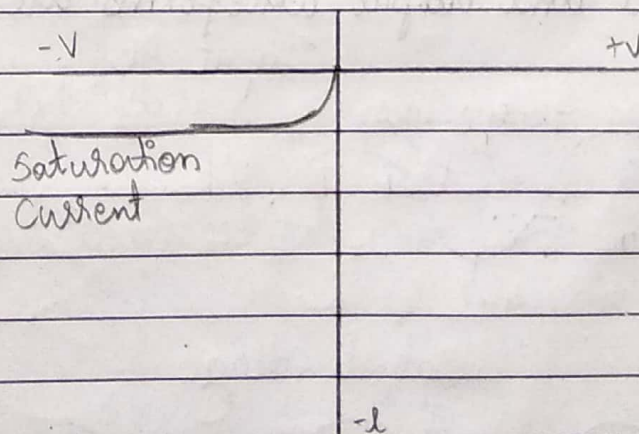 -V
+V
Saturation
Current
-I